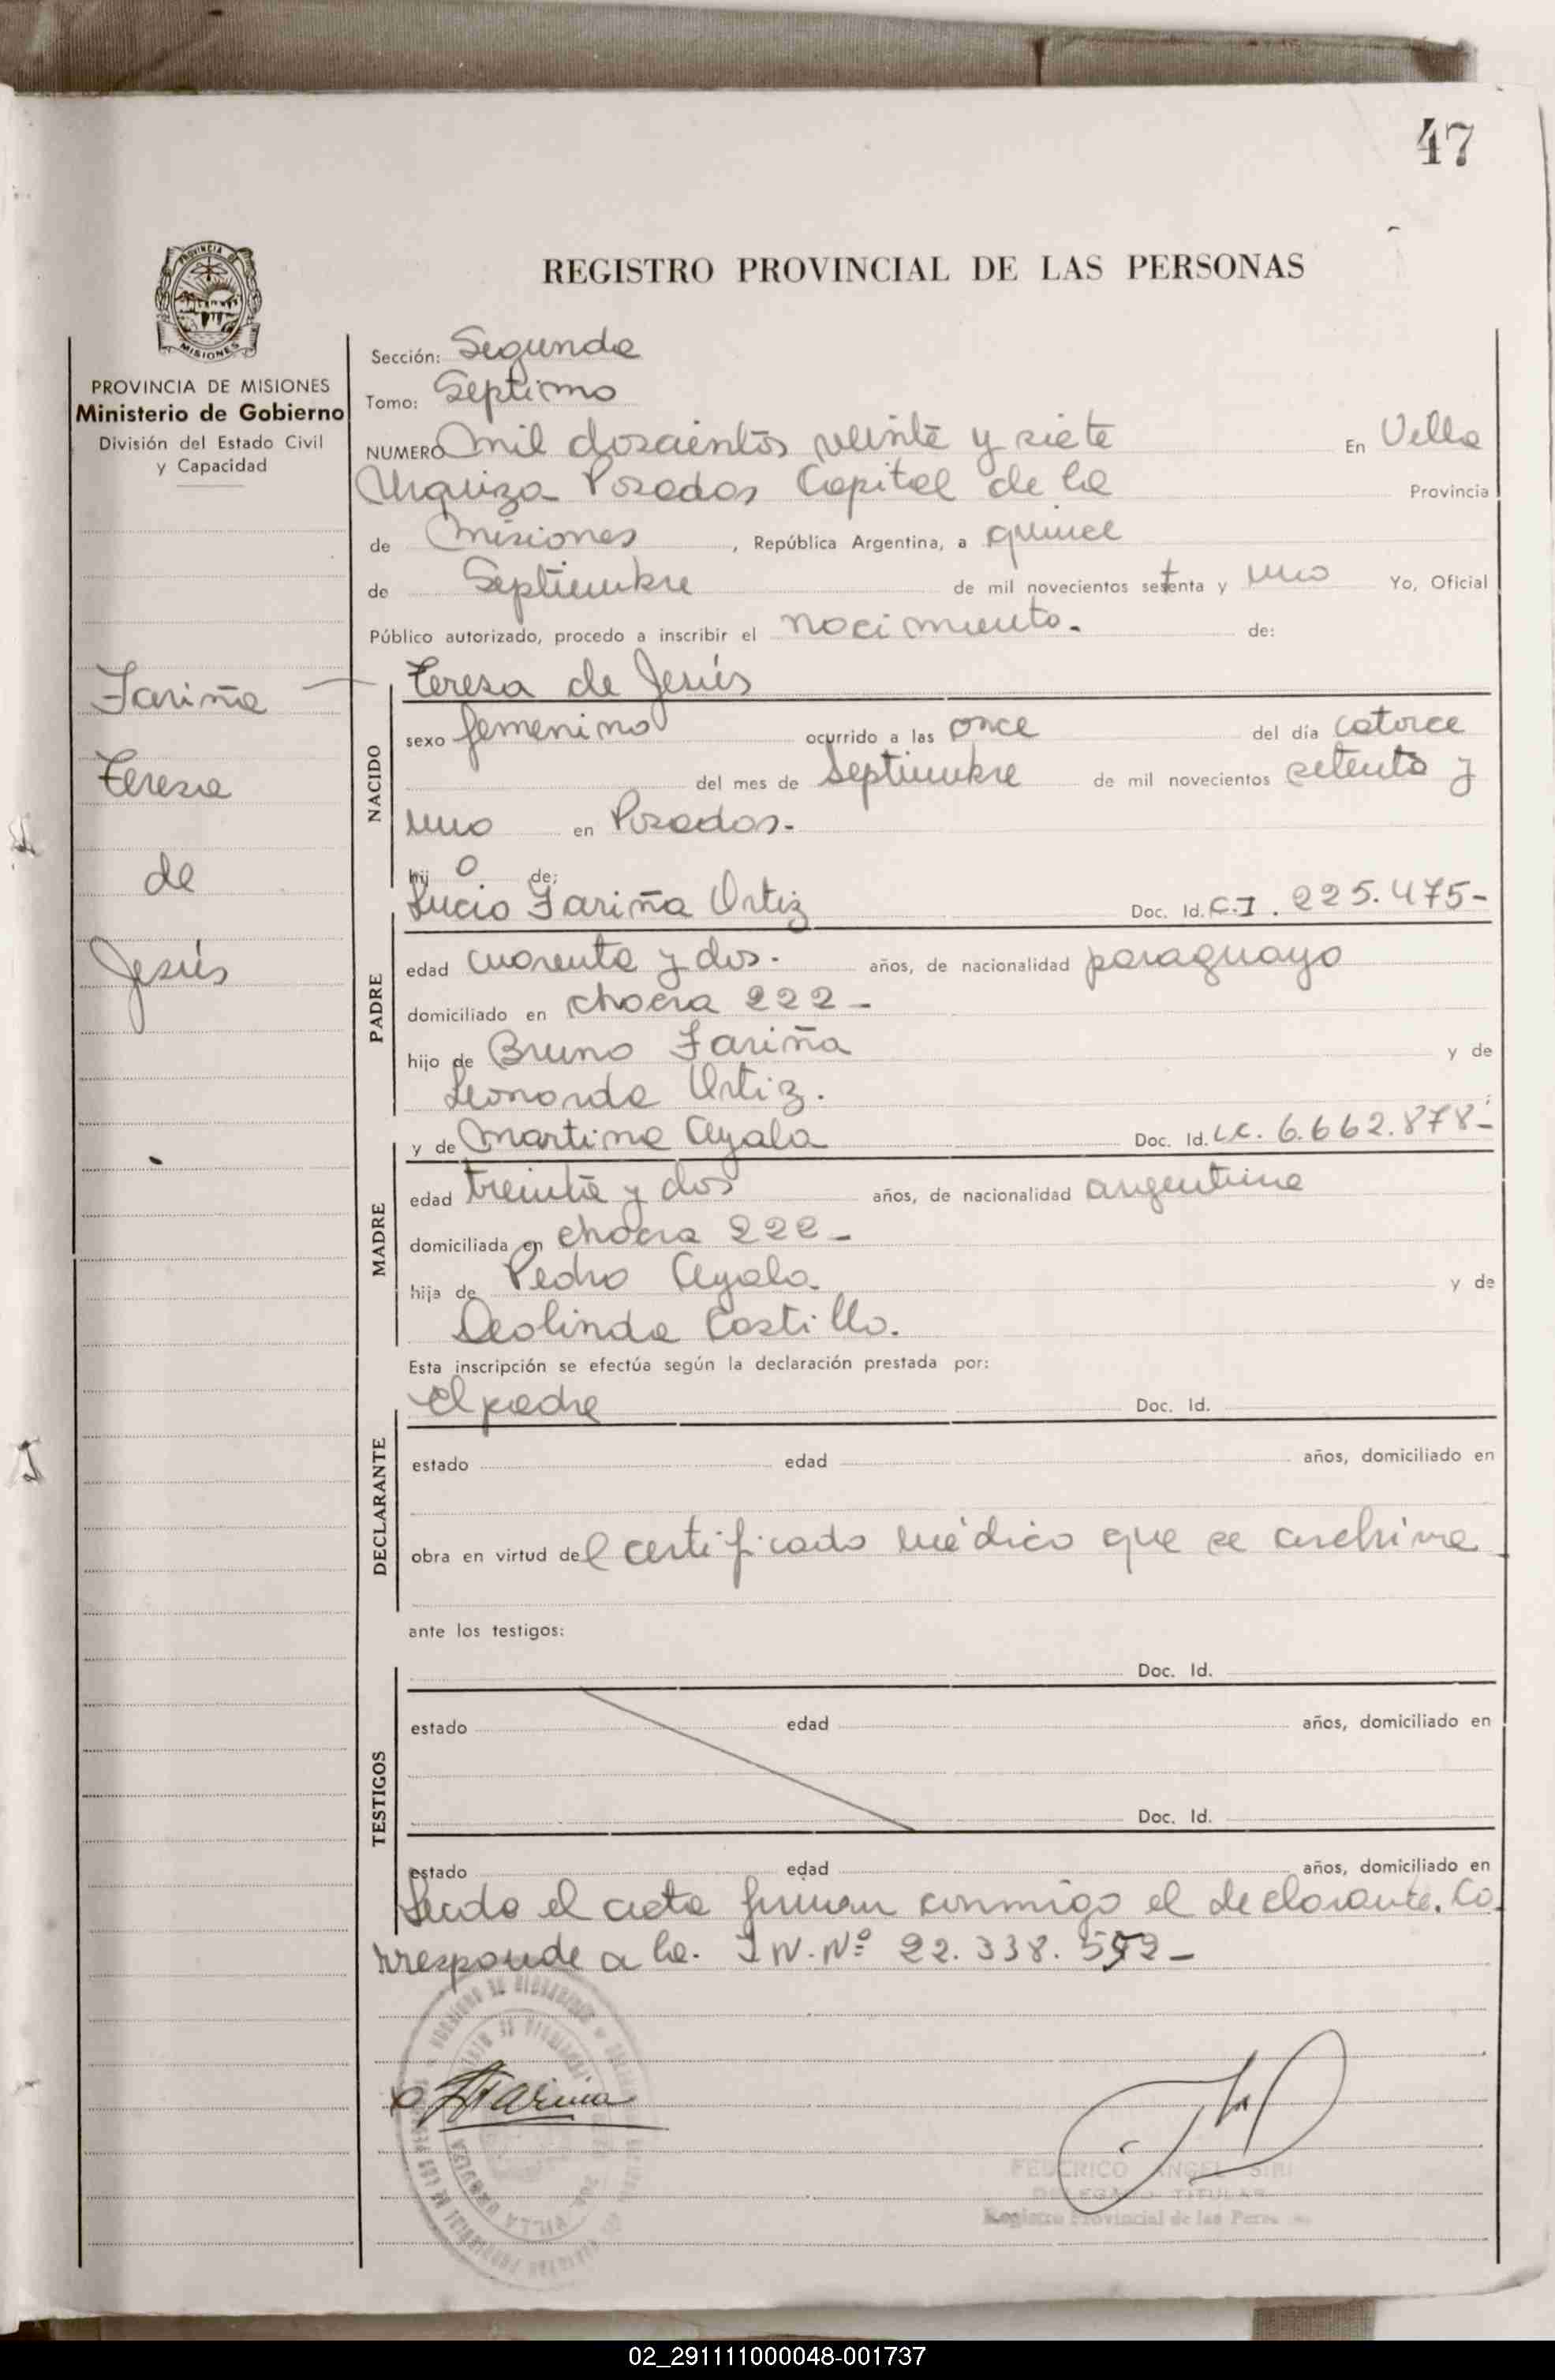 47
REGISTRO PROVINCIAL DE LAS PERSONAS
PROVINCIA DE
MISIONES
PROVINCIA DE MISIONES
Ministerio de Gobierno
División del Estado Civil
y Capacidad
Fariña
Teresa
de
Jesús
Sección: Segunda
Tomo: Septimo
NUMERO mil doscientos veinte y siete En Villa
Urquiza Posadas Capital de la Provincia
de Misiones , República Argentina, a quince
de Septiembre de mil novecientos setenta y uno Yo, Oficial
Público autorizado, procedo a inscribir el nacimiento. de:
Teresa de Jesús
NACIDO
sexo femenino ocurrido a las once del día catorce
del mes de Septiembre de mil novecientos setenta y
uno en Posadas.
hij o de:
Lucio Fariña Ortiz Doc. Id. C.I. 225.475-
PADRE
edad cuarenta y dos. años, de nacionalidad paraguayo
domiciliado en chacra 222-
hijo de Bruno Fariña y de
Leonarda Ortiz.
y de Martina Ayala Doc. Id. L.C. 6.662.878-
MADRE
edad treinta y dos años, de nacionalidad argentina
domiciliada en chacra 222-
hija de Pedro Ayala y de
Deolinda Castillo.
Esta inscripción se efectúa según la declaración prestada por:
el padre Doc. Id.
DECLARANTE
estado edad años, domiciliado en
obra en virtud del certificado médico que se archiva
ante los testigos:
Doc. Id.
TESTIGOS
estado edad años, domiciliado en
Doc. Id.
estado edad años, domiciliado en
Leida el acta firman conmigo el declarante. Co
rresponde a la. I N. Nº 22.338.
Fariña
VILLA URQUIZA
FEDERICO ANGEL SIRI
DELEGADO TITULAR
Registro Provincial de las Pers
02_291111000048-001737